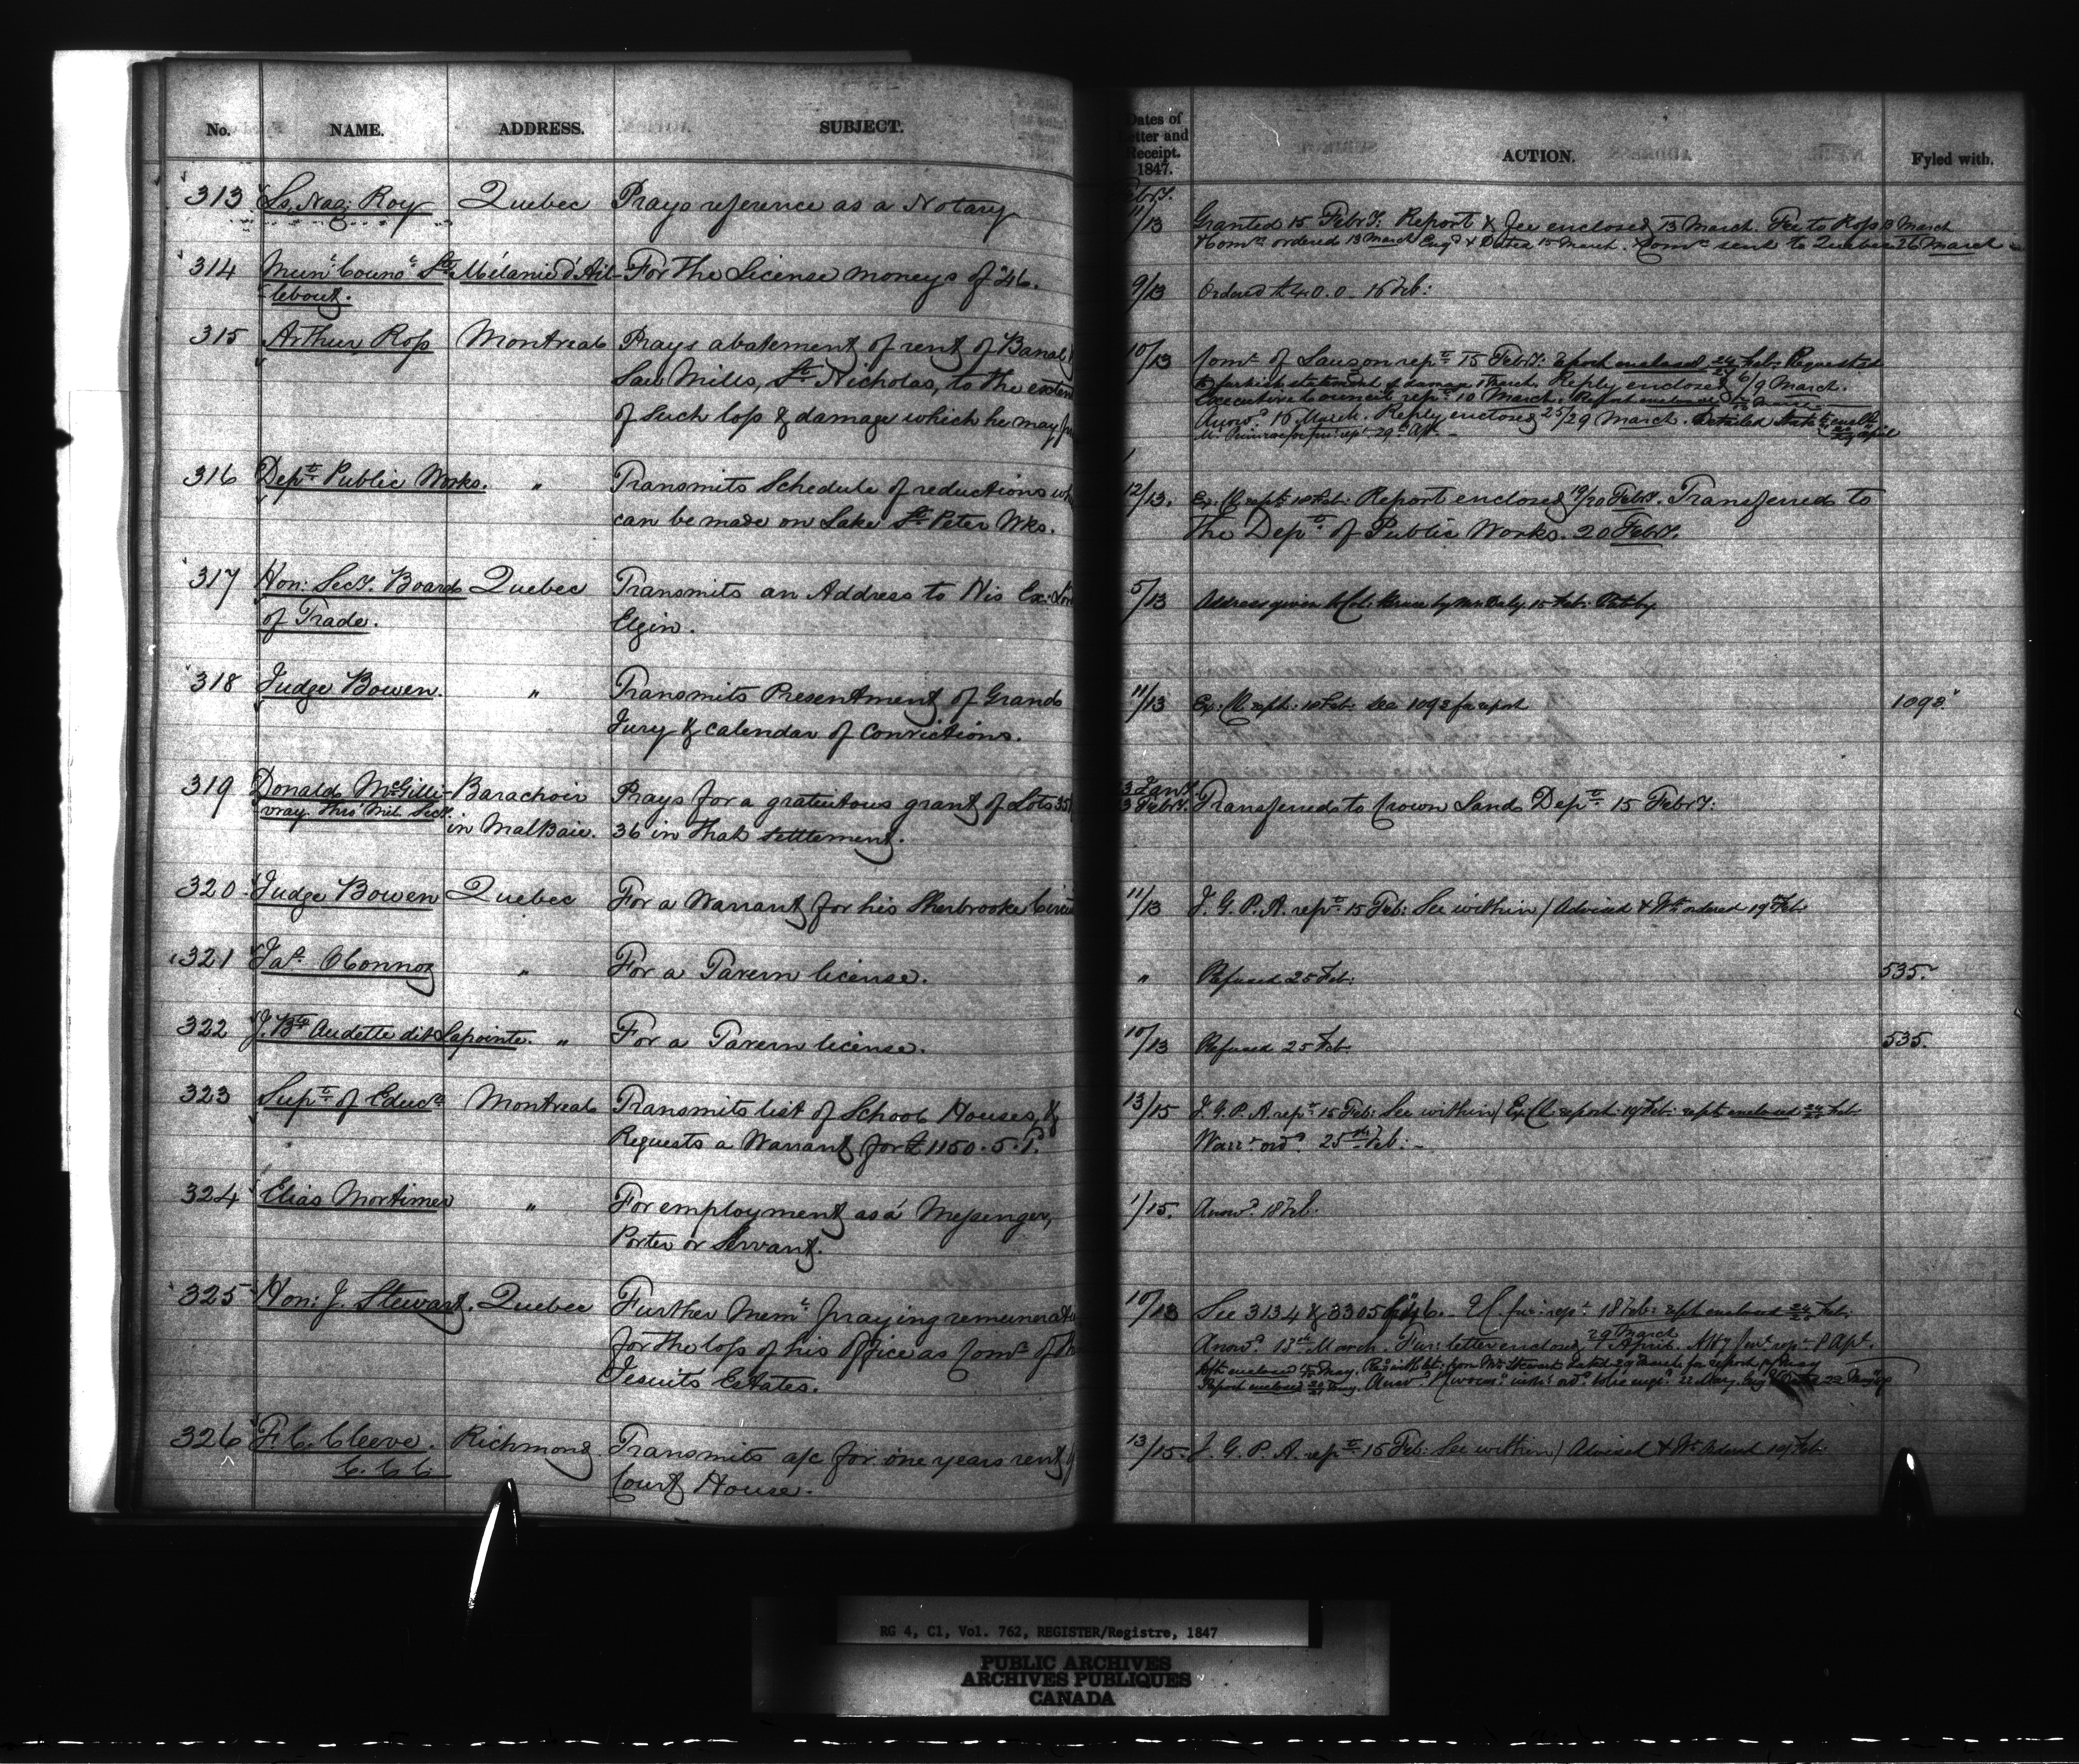 No. NAME. ADDRESS. SUBJECT.
313 Ls. Naz: Roy Quebec Prays reference as a Notary
314 Munl. Councl. Ste Mélanie d'Ail- For the License moneys of '46.
lebout.
315 Arthur Ross Montreal Prays abatement of rent of Banal
Saw Mills, St. Nicholas, to the extent
of such loss & damage which he may
316 Dept. Public Works. " Transmits Schedule of reductions wh
can be made on Lake St. Peter Wks.
317 Hon: Secy. Board Quebec Transmits an Address to His Ex: Lord
of Trade. Elgin.
318 Judge Bowen. " Transmits Presentment of Grand
Jury & calendar of Convictions.
319 Donald McGilli- Barachoir Prays for a gratuitous grant of Lots 35
vray. thro' Mil. Secy. in MalBaie. 36 in that settlement.
320. Judge Bowen Quebec For a Warrant for his Sherbrooke Circuit
321 Jas. OConnor " For a Tavern license.
322 J. Bte Audette dit Lapointe. " For a Tavern license.
323 Supt. of Educn. Montreal Transmits list of School Houses, &
Requests a Warrant for £1150.5.1.
324 Elias Mortimer " For employment as a Messenger,
Porter or Servant.
325 Hon: J. Stewart. Quebec Further Meml. praying remunerat
for the loss of his Office as Comr. of the
Jesuits Estates.
326 F. C. Cleeve. Richmond Transmits a/c for one years rent of
C. C. C. Court House.
Dates of
Letter and
Receipt.
1847. ACTION. Fyled with.
Febry.
11/13 Granted 15 Febry. Report & fee enclosed 13 March. Fee to Ross 13 March
& Comn. ordered 13 March Engd. & Dated 15 March. Comn. sent to Quebec 26 March
9/13 Ordered £40.0. 16 Feb:
10/13 Comr. of Lauzon rept. 15 Febry. Report enclosed 24 Feb: Requested
to furnish statement of damage 1 March. Reply enclosed 6/9 March.
Executive Council rept. 10 March. Report enclosed
Answd. 16 March. Reply enclosed 25/29 March. Detailed Statt. encld.
rept. 29 Apl.
12/13. Ex: Cl. rept. 18 Feb: Report enclosed 19/20 Febry. Transferred to
the Dept. of Public Works. 20 Febry.
5/13 Address given to Col: Bruce by Mr Daly. 15 Feb:
11/13 Ex: Cl. rept: 18 Feb: See 1093 for report 1093.
3 Jany.
13 Febry. Transferred to Crown Lands Dept. 15 Febry:
11/13 I. G. P. A. rept. 15 Feb: See within / Advised & Wt. ordered 19 Feb:
" Refused 25 Feb: 535.
10/13 Refused 25 Feb. 535.
13/15 I. G. P. A. rept. 15 Feb: See within / Ex: Cl. report. 19 Feb: rept. enclosed 24/25 Feb:
Warrt. ordd. 25th Feb:
1/15. Answd. 18 Feb.
10/13 See 3134 & 3305 of 46. rept. 18 Feb: rept. enclosed 24/25 Feb:
Answd. 13th March. Fur: letter enclosed 29 March 7 April. Atty Genl. rept. 8 Apl.
13/15. I. G. P. A. rept. 15 Feb: See within / Advised & Wt. Ordered 19 Feb:
RG 4, C1, Vol. 762, REGISTER/Registre, 1847
PUBLIC ARCHIVES
ARCHIVES PUBLIQUES
CANADA